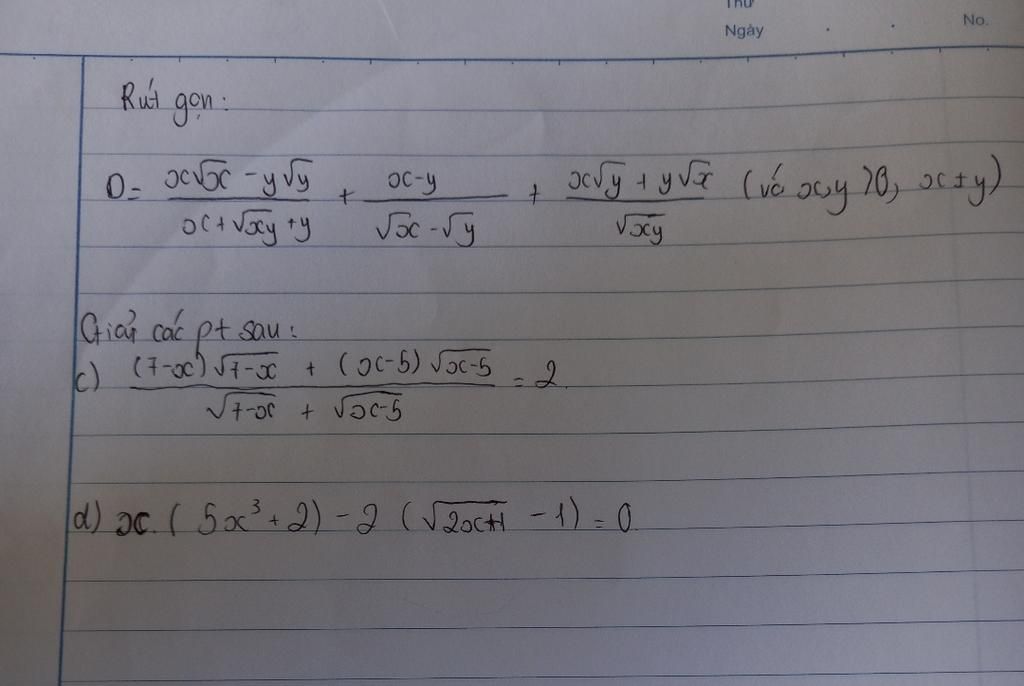 Thứ
Ngày . . No.
Rút gọn:
D = \frac{x\sqrt{x} - y\sqrt{y}}{x + \sqrt{xy} + y} + \frac{x-y}{\sqrt{x} - \sqrt{y}} + \frac{x\sqrt{y} + y\sqrt{x}}{\sqrt{xy}} (với x,y >0, x ± y)
Giải các pt sau:
c) \frac{(7-x)\sqrt{7-x} + (x-5)\sqrt{x-5}}{\sqrt{7-x} + \sqrt{x-5}} = 2.
d) x. (5x^3 + 2) - 2 (\sqrt{2x+1} - 1) = 0.